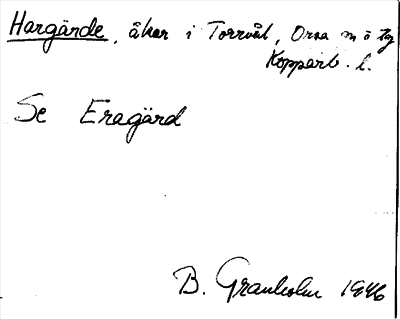 Hargärde, åker i Torrvål, Orsa m o tg
Kopparb. l.
Se Eragärd
B. Granholm 1946